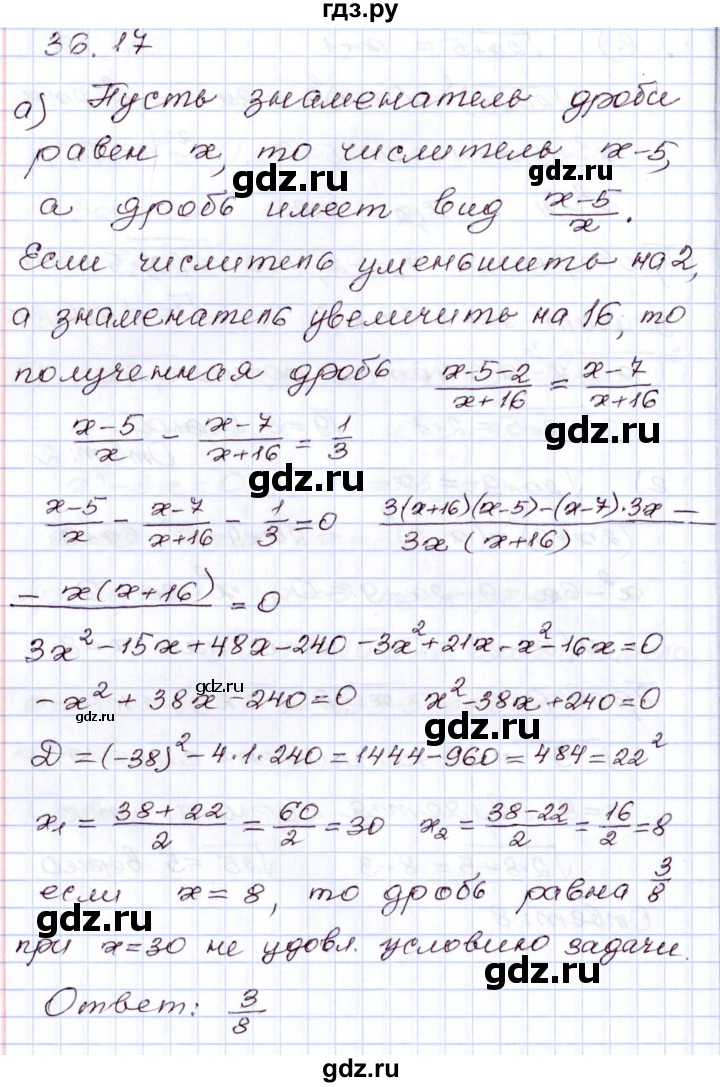 гдз.ру
36.17
а) Пусть знаменатель дроби
равен x, то числитель x-5,
gdz.ru
а дробь имеет вид (x-5)/x.
gdz.ru
Если числитель уменьшить на 2,
а знаменатель увеличить на 16, то
полученная дробь (x-5-2)/(x+16) = (x-7)/(x+16)
gdz.ru
(x-5)/x - (x-7)/(x+16) = 1/3
gdz.ru
(x-5)/x - (x-7)/(x+16) - 1/3 = 0   3(x+16)(x-5)-(x-7)·3x -
3x(x+16)
- x(x+16) = 0
3x²-15x+48x-240-3x²+21x-x²-16x=0
gdz.ru
-x²+38x-240=0   x²-38x+240=0
gdz.ru
gdz.ru
D=(-38)²-4·1·240=1444-960=484=22²
x₁ = (38+22)/2 = 60/2 = 30   x₂ = (38-22)/2 = 16/2 = 8
если x=8, то дробь равна 3/8
gdz.ru
при x=30 не удовл. условию задачи.
gdz.ru
Ответ: 3/8
gdz.ru